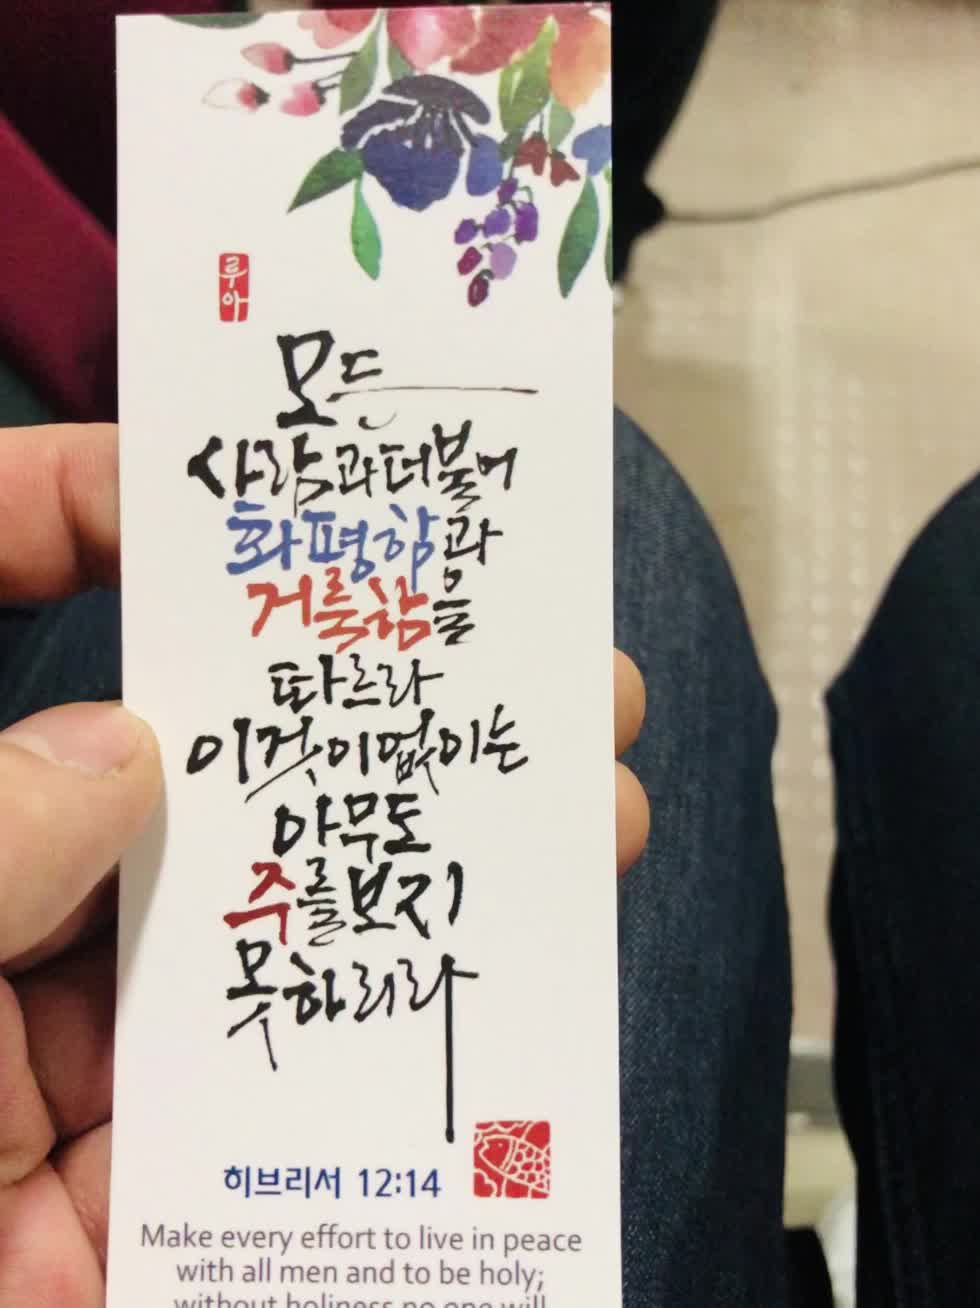 루아
모든
사람과더불어
화평함과
거룩함을
따르라
이것이없이는
아무도
주를보지
못하리라
히브리서 12:14
Make every effort to live in peace
with all men and to be holy;
without holiness no one will